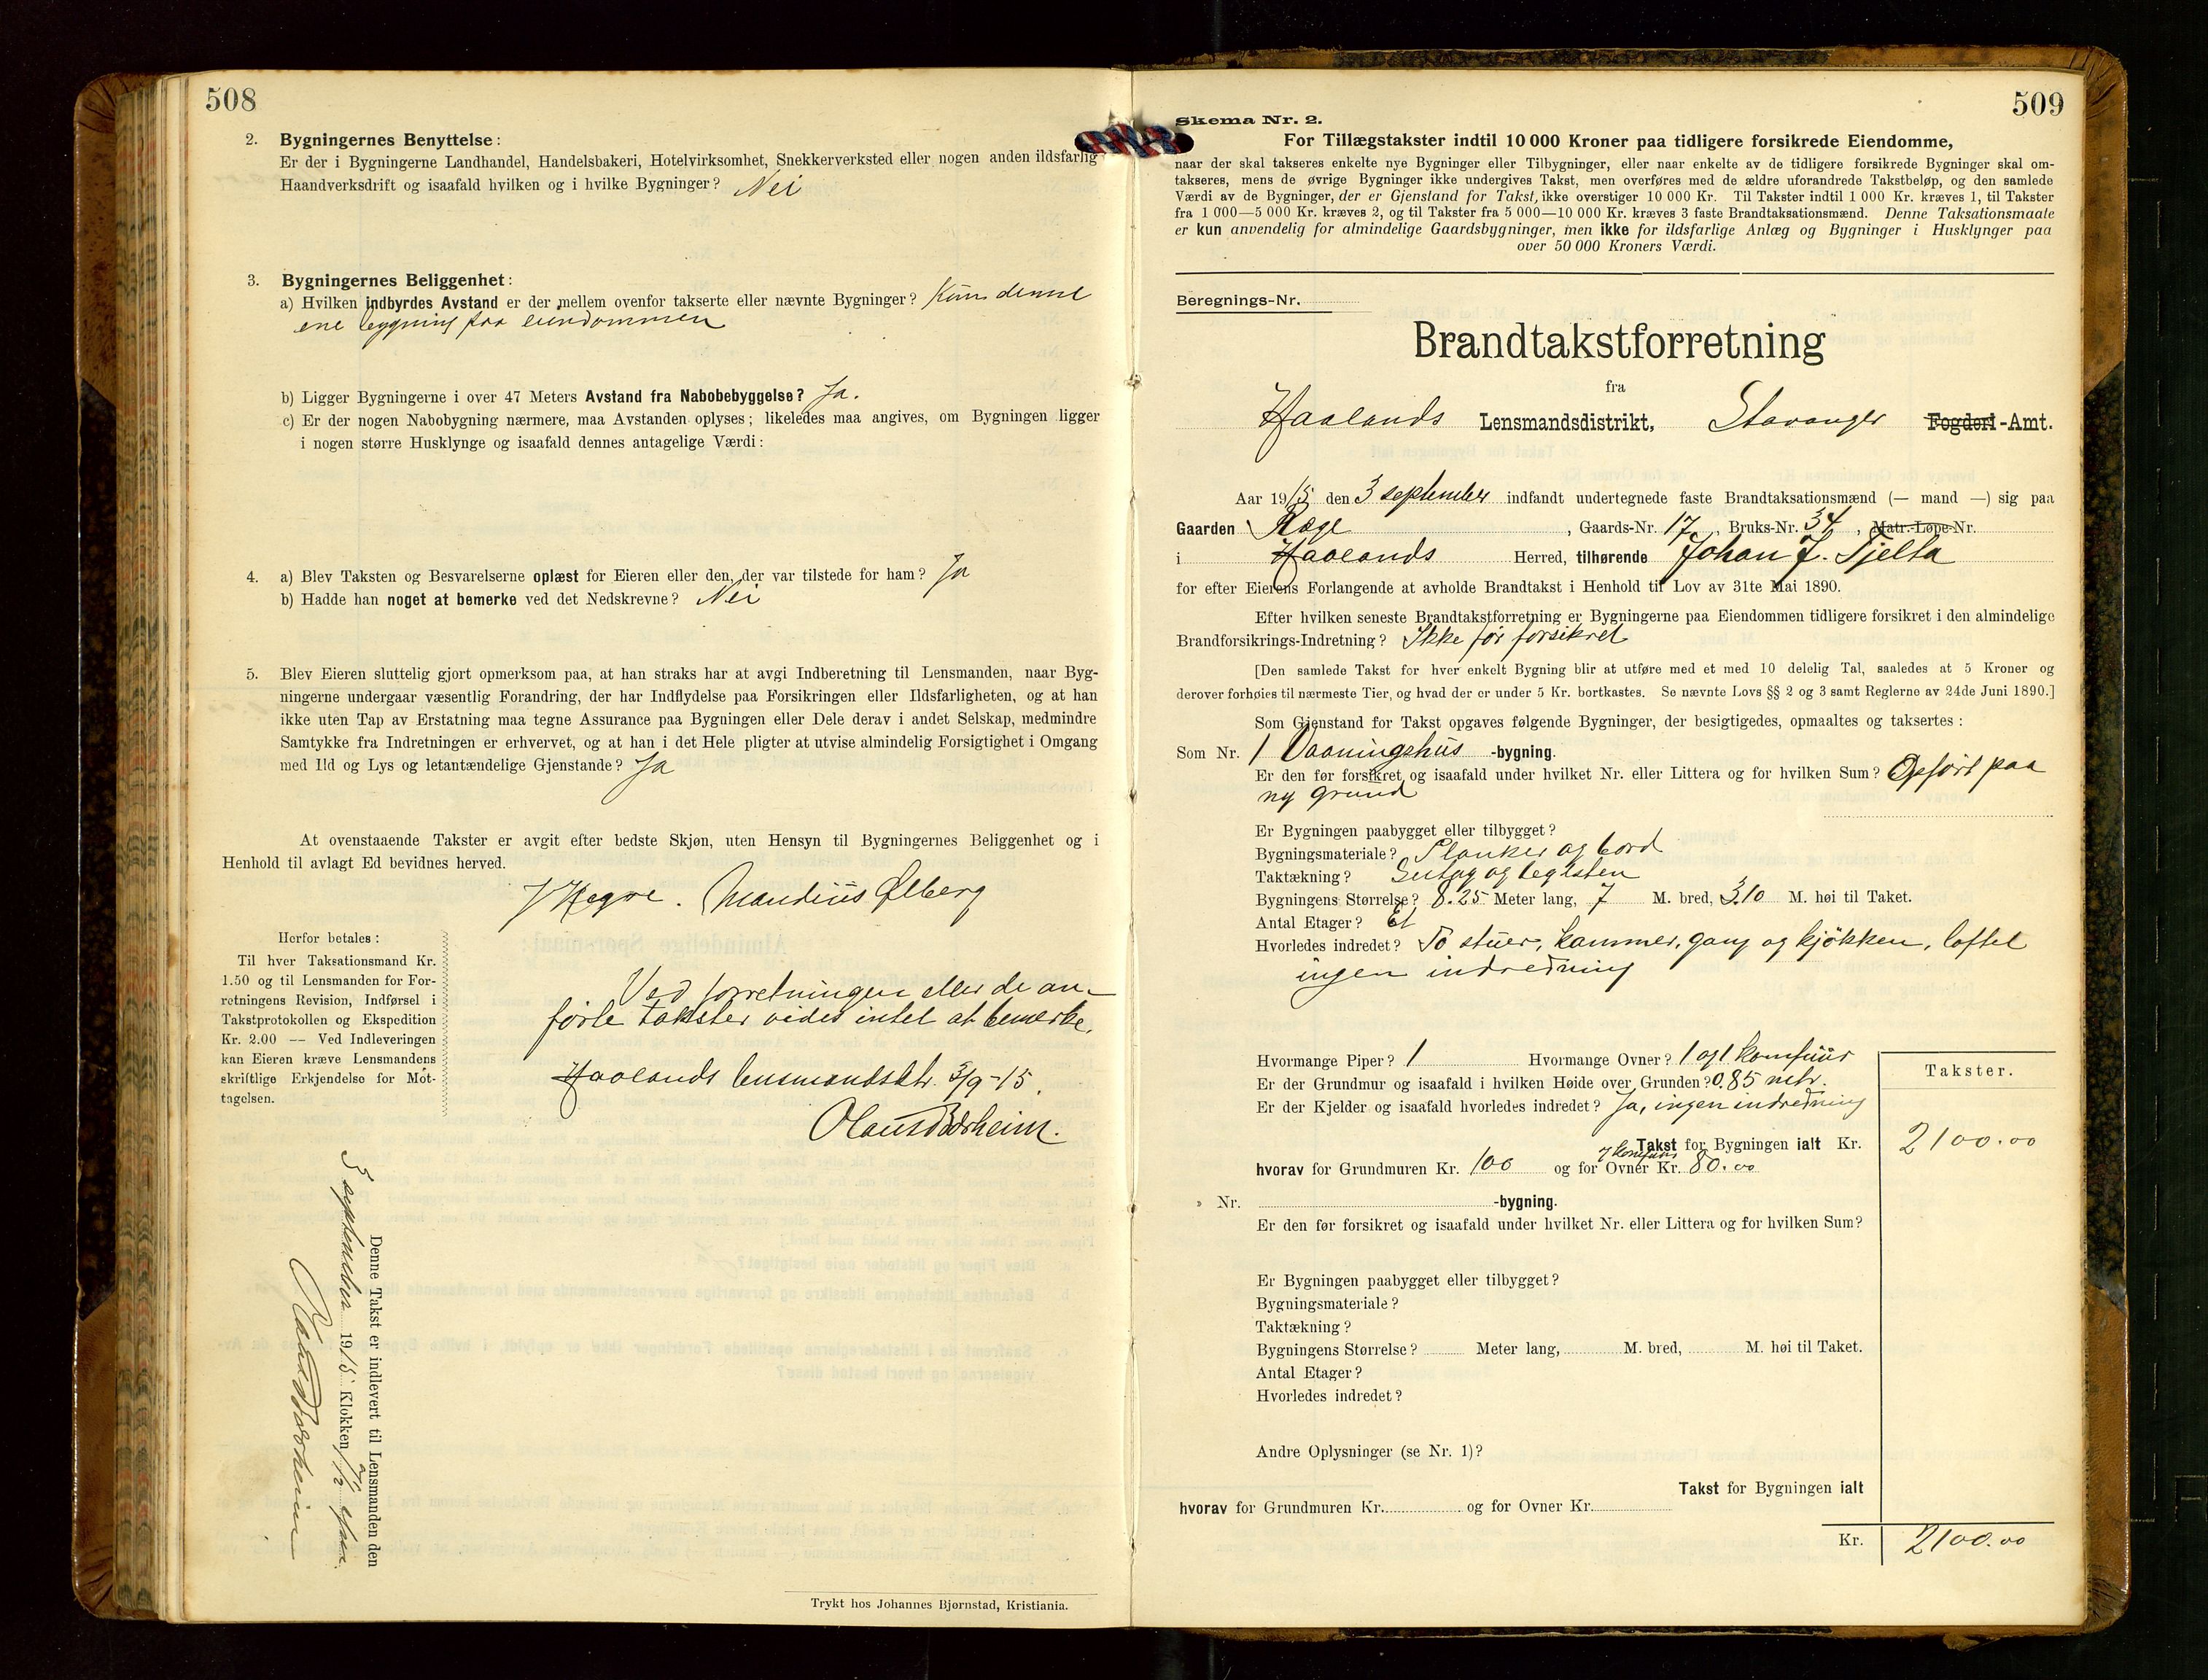 508
2. Bygningernes Benyttelse:
Er der i Bygningerne Landhandel, Handelsbakeri, Hotelvirksomhet, Snekkerverksted eller nogen anden ildsfarlig
Haandverksdrift og isaafald hvilken og i hvilke Bygninger? Nei
3. Bygningernes Beliggenhet:
a) Hvilken indbyrdes Avstand er der mellem ovenfor takserte eller nævnte Bygninger? Kun denne
ene bygning paa eiendommen
b) Ligger Bygningerne i over 47 Meters Avstand fra Nabobebyggelse? Ja.
c) Er der nogen Nabobygning nærmere, maa Avstanden oplyses; likeledes maa angives, om Bygningen ligger
i nogen større Husklynge og isaafald dennes antagelige Værdi:
4. a) Blev Taksten og Besvarelserne oplæst for Eieren eller den, der var tilstede for ham? Ja
b) Hadde han noget at bemerke ved det Nedskrevne? Nei
5. Blev Eieren sluttelig gjort opmerksom paa, at han straks har at avgi Indberetning til Lensmanden, naar Byg-
ningerne undergaar væsentlig Forandring, der har Indflydelse paa Forsikringen eller Ildsfarligheten, og at han
ikke uten Tap av Erstatning maa tegne Assurance paa Bygningen eller Dele derav i andet Selskap, medmindre
Samtykke fra Indretningen er erhvervet, og at han i det Hele pligter at utvise almindelig Forsigtighet i Omgang
med Ild og Lys og letantændelige Gjenstande? Ja
At ovenstaaende Takster er avgit efter bedste Skjøn, uten Hensyn til Bygningernes Beliggenhet og i
Henhold til avlagt Ed bevidnes herved.
Mandius Ølberg
Herfor betales:
Til hver Taksationsmand Kr.
1.50 og til Lensmanden for For-
retningens Revision, Indførsel i
Takstprotokollen og Ekspedition
Kr. 2.00 — Ved Indleveringen
kan Eieren kræve Lensmandens
skriftlige Erkjendelse for Mot-
tagelsen.
Ved forretningen eller de an-
førte takster vides intet at bemerke.
Haalands lensmandsktr. 3/9-15.
Olaus Børheim.
Denne Takst er indlevert til Lensmanden den
5 september 1915 Klokken
Olaus Børheim
Trykt hos Johannes Bjørnstad, Kristiania.
509
Skema Nr. 2.
For Tillægstakster indtil 10 000 Kroner paa tidligere forsikrede Eiendomme,
naar der skal takseres enkelte nye Bygninger eller Tilbygninger, eller naar enkelte av de tidligere forsikrede Bygninger skal om-
takseres, mens de øvrige Bygninger ikke undergives Takst, men overføres med de ældre uforandrede Takstbeløp, og den samlede
Værdi av de Bygninger, der er Gjenstand for Takst, ikke overstiger 10 000 Kr. Til Takster indtil 1 000 Kr. kræves 1, til Takster
fra 1 000—5 000 Kr. kræves 2, og til Takster fra 5 000—10 000 Kr. kræves 3 faste Brandtaksationsmænd. Denne Taksationsmaate
er kun anvendelig for almindelige Gaardsbygninger, men ikke for ildsfarlige Anlæg og Bygninger i Husklynger paa
over 50 000 Kroners Værdi.
Beregnings-Nr.
Brandtakstforretning
fra
Haalands Lensmandsdistrikt, Stavanger Fogderi-Amt.
Aar 1915 den 3 september indfandt undertegnede faste Brandtaksationsmænd (— mand —) sig paa
Gaarden Ræge, Gaards-Nr. 17, Bruks-Nr. 34, Matr.-Løpe-Nr.
i Haalands Herred, tilhørende Johan J. Tjelta
for efter Eierens Forlangende at avholde Brandtakst i Henhold til Lov av 31te Mai 1890.
Efter hvilken seneste Brandtakstforretning er Bygningerne paa Eiendommen tidligere forsikret i den almindelige
Brandforsikrings-Indretning? Ikke før forsikret
[Den samlede Takst for hver enkelt Bygning blir at utføre med et med 10 delelig Tal, saaledes at 5 Kroner og
derover forhøies til nærmeste Tier, og hvad der er under 5 Kr. bortkastes. Se nævnte Lovs §§ 2 og 3 samt Reglerne av 24de Juni 1890.]
Som Gjenstand for Takst opgaves følgende Bygninger, der besigtigedes, opmaaltes og taksertes:
Som Nr. 1 Vaaningshus -bygning.
Er den før forsikret og isaafald under hvilket Nr. eller Littera og for hvilken Sum? Opført paa
ny grund
Er Bygningen paabygget eller tilbygget?
Bygningsmateriale? Planker og bord
Taktækning? Sutag og teglsten
Bygningens Størrelse? 8.25 Meter lang, 7 M. bred, 3.10 M. høi til Taket.
Antal Etager? Et
Hvorledes indredet? To stuer, kammer, gang og kjøkken, loftet
ingen indredning
Hvormange Piper? 1 Hvormange Ovner? 1 og 1 komfuur
Er der Grundmur og isaafald i hvilken Høide over Grunden? 0.85 mtr.
Er der Kjelder og isaafald hvorledes indredet? Ja, ingen indredning
Takster.
Takst for Bygningen ialt Kr. 2100.00
hvorav for Grundmuren Kr. 100 og for Ovner Kr. 80.00
» Nr. -bygning.
Er den før forsikret og isaafald under hvilket Nr. eller Littera og for hvilken Sum?
Er Bygningen paabygget eller tilbygget?
Bygningsmateriale?
Taktækning?
Bygningens Størrelse? Meter lang, M. bred, M. høi til Taket.
Antal Etager?
Hvorledes indredet?
Andre Oplysninger (se Nr. 1)?
Takst for Bygningen ialt
hvorav for Grundmuren Kr. og for Ovner Kr.
Kr. 2100.00